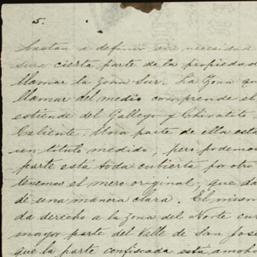 5.
bastan a definir sin necesidad
una cierta parte de la propiedad
llamar la zona Sur. La zona
llamar del medio comprende el
estiende del Gallego y Chivatito
Caliente. Una parte de ella está
sin título medido, pero podemos
parte está toda cubierta por otro
tenemos el mero original, que da
de una manera clara. El mismo
da derecho a la zona del Norte
mayor parte del Valle de San José
que la parte confiscada esta